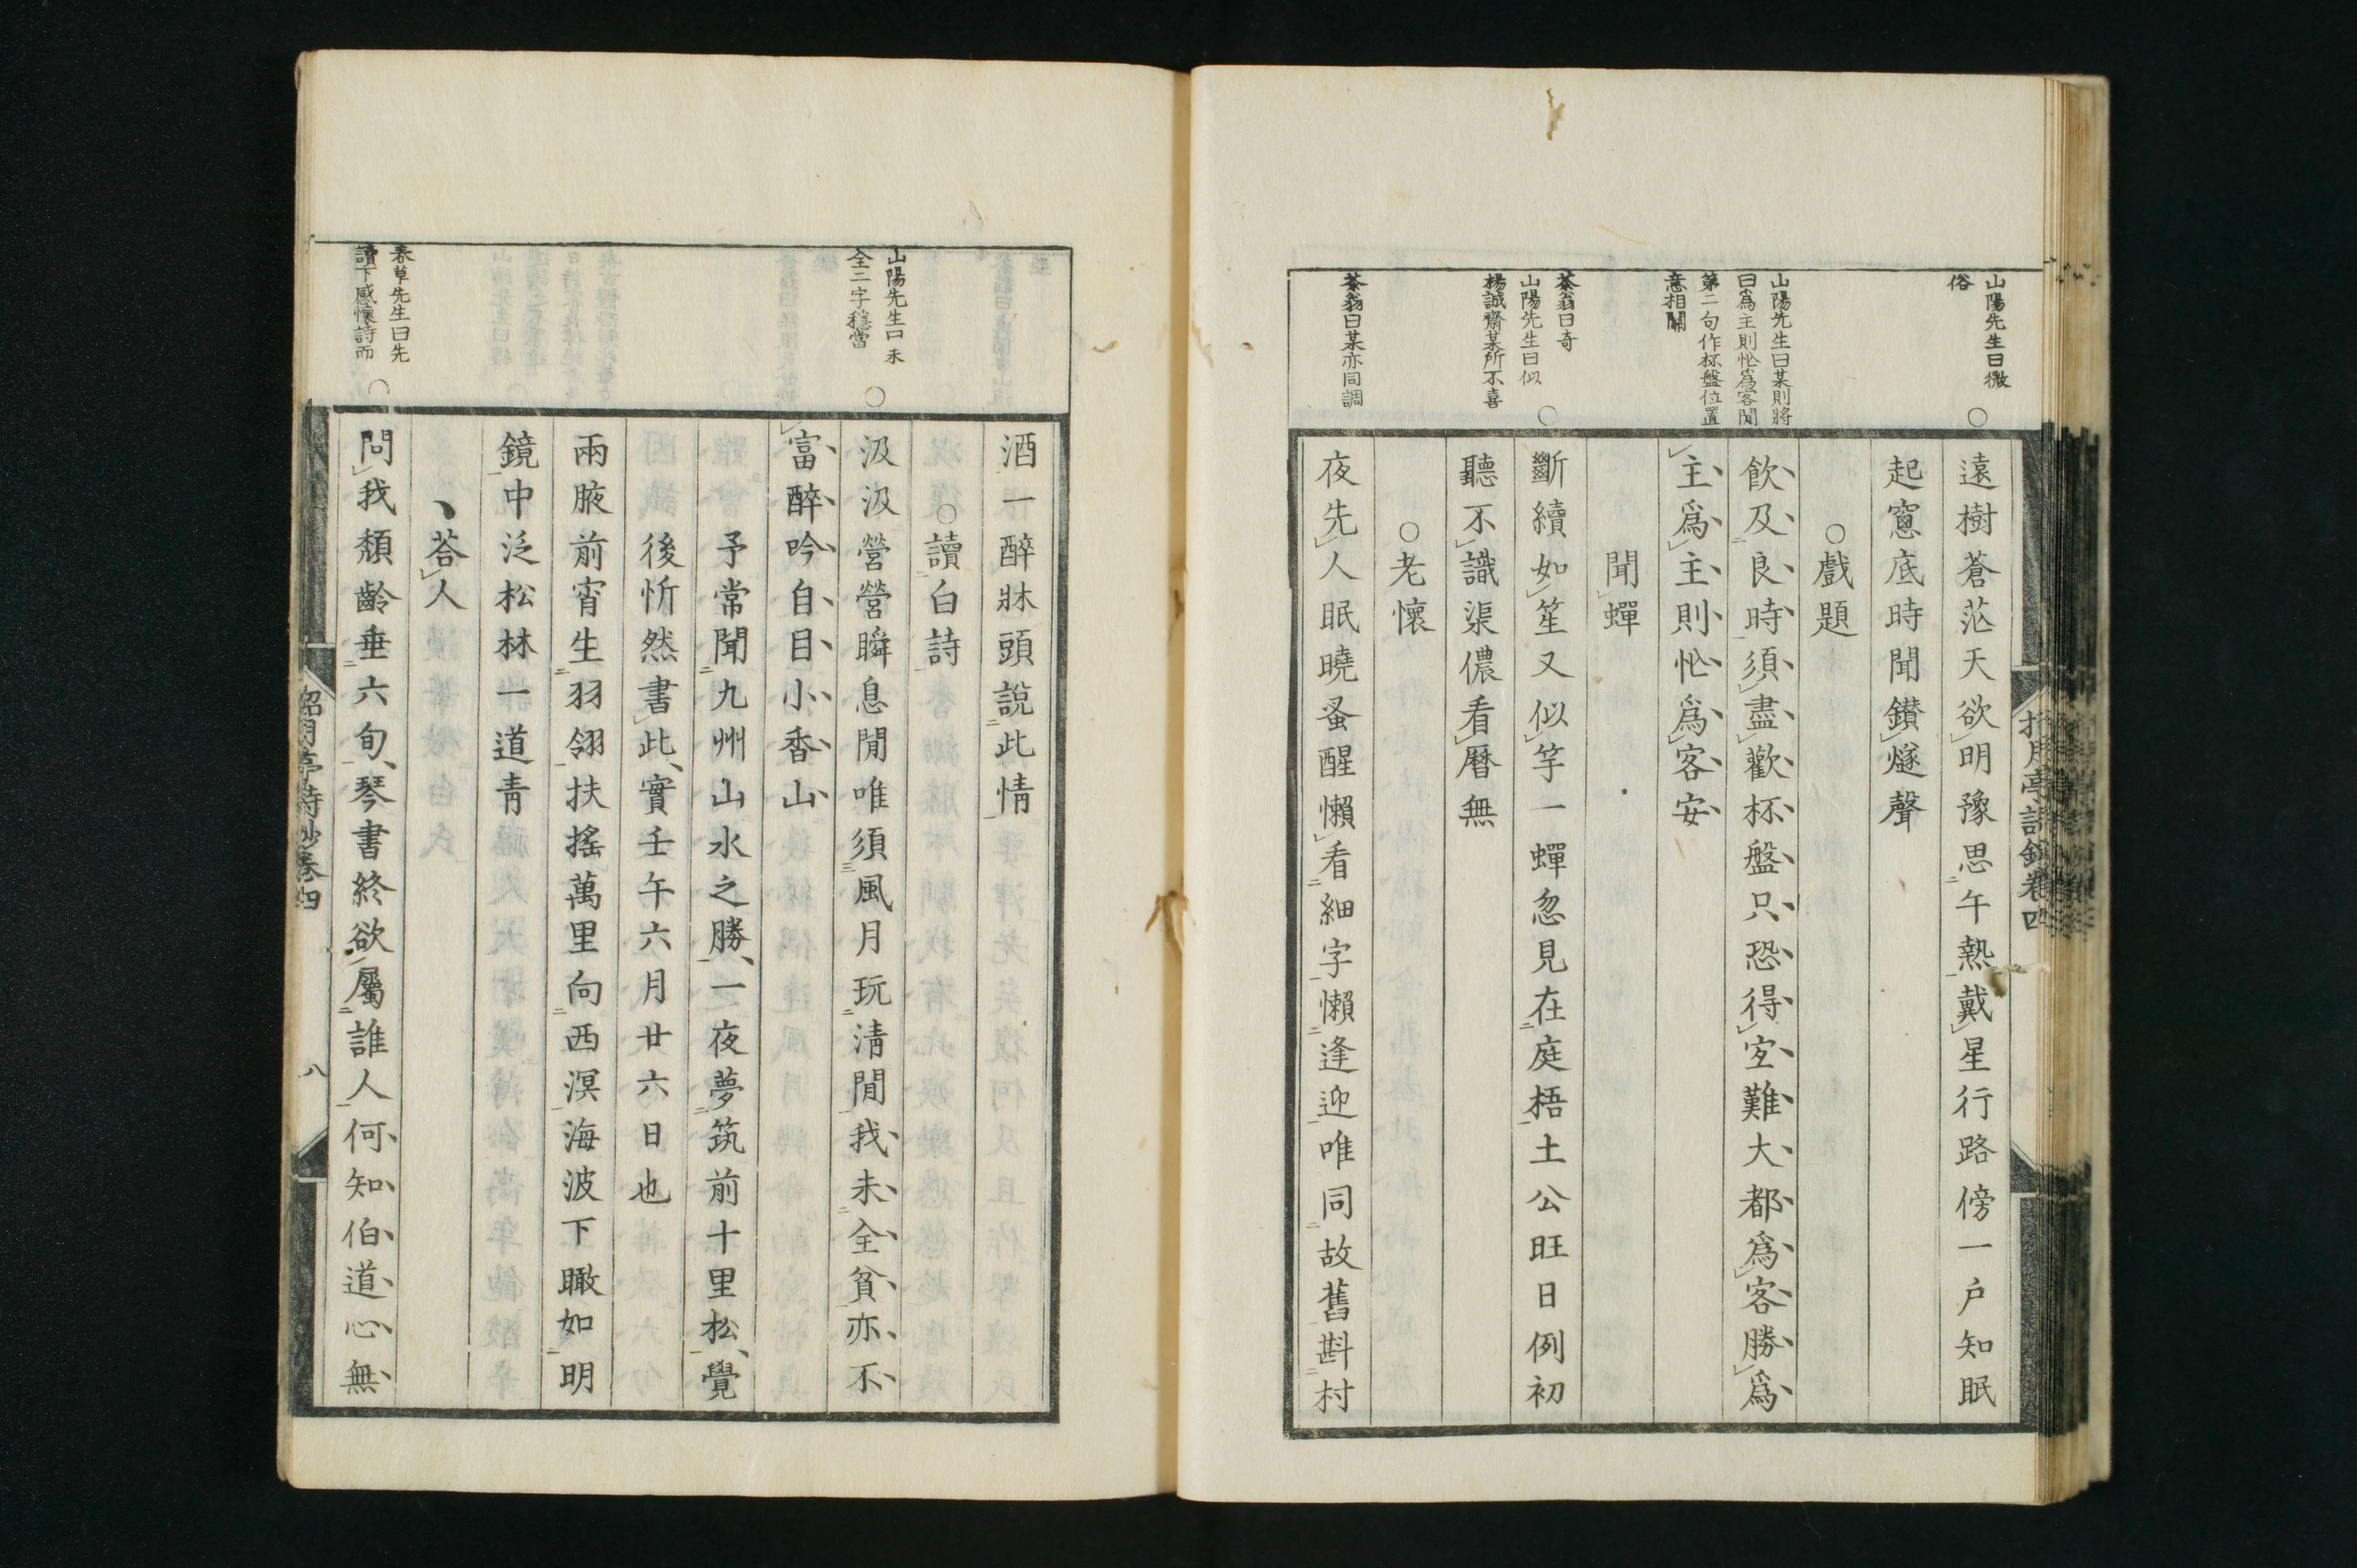 山陽先生曰微
俗
山陽先生曰某則將
曰爲主則忙爲客閒
第二句作杯盤位置
意相關
茶翁曰奇
山陽先生曰似
楊誠齋某所不喜
茶翁曰某亦同調
遠樹蒼茫天欲明豫思午熱戴星行路傍一戶知眠
起窓底時聞鑚燧聲
○戲題
飲及良時須盡歡杯盤只恐得宜難大都爲客勝爲
主爲主則忙爲客安
聞蟬
斷續如笙又似竽一蟬忽見在庭梧土公旺日例初
聽不識渠儂看曆無
○老懷
夜先人眠曉蚤醒懶看細字懶逢迎唯同故舊斟村
酒一醉牀頭說此情
○讀白詩
山陽先生曰未
全二字穩當
汲汲營營瞬息閒唯須風月玩淸閒我未全貧亦不
富醉吟自目小香山
予常聞九州山水之勝一夜夢筑前十里松覺
後忻然書此實壬午六月廿六日也
兩腋前宵生羽翎扶搖萬里向西溟海波下瞰如明
鏡中泛松林一道靑
答人
春草先生曰先
讀下感懷詩而
問我頹齡垂六旬琴書終欲屬誰人何知伯道心無
詩鈔卷四
八